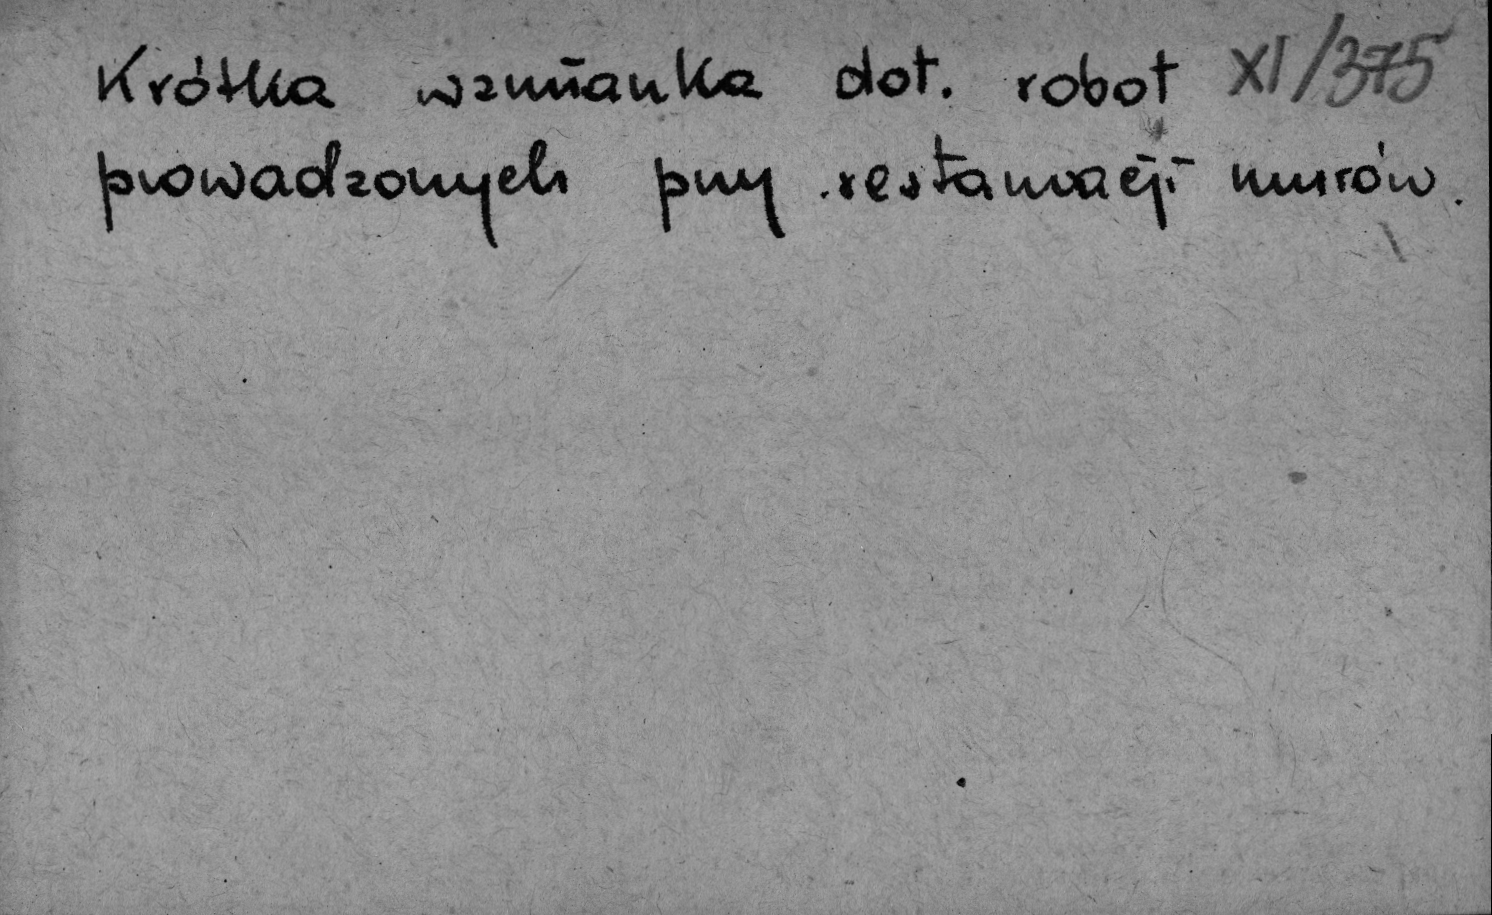 Krótka wzmianka dot. robot XI/375
prowadzonych przy restauracji murów.